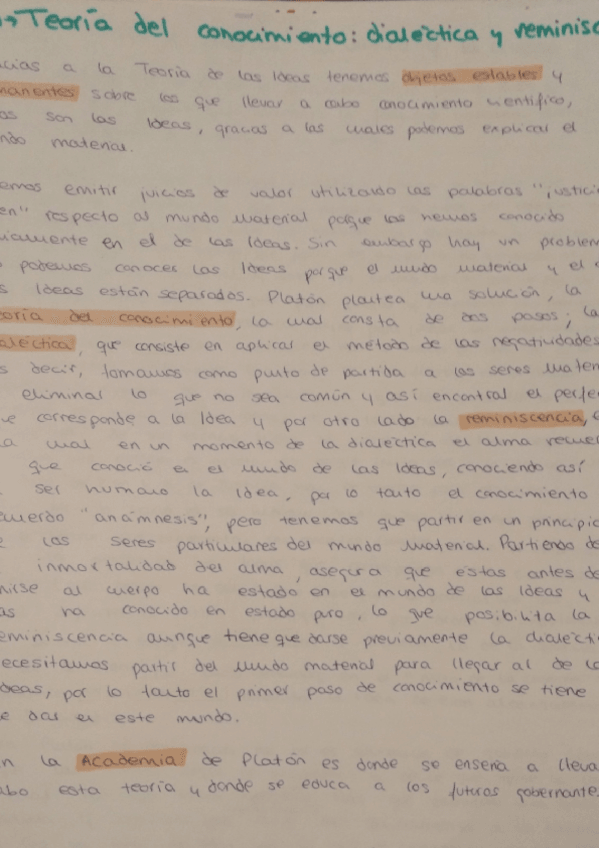 Teoría del conocimiento: dialéctica y reminisc
cias a la Teoría de las Ideas tenemos objetos estables y
manentes sobre los que llevar a cabo conocimiento científico,
as son las Ideas, gracias a las cuales podemos explicar el
ndo material.
emos emitir juicios de valor utilizando las palabras "justici
en" respecto al mundo material porque las hemos conocido
iamente en el de las Ideas. Sin embargo hay un problem
podemos conocer las Ideas porque el mundo material y el
s Ideas están separados. Platón plantea una solución, la
oría del conocimiento, la cual consta de dos pasos; la
aléctica, que consiste en aplicar el método de las negatividades
s decir, tomamos como punto de partida a los seres materi
eliminar lo que no sea común y así encontrar el perfe
ue corresponde a la Idea y por otro lado la reminiscencia,
a cual en un momento de la dialéctica el alma recuer
que conoció en el mundo de las Ideas, conociendo así
ser humano la Idea, por lo tanto el conocimiento
cuerdo "anámnesis", pero tenemos que partir en un principio
e los seres particulares del mundo material. Partiendo de
inmortalidad del alma, asegura que estas antes de
nirse al cuerpo ha estado en el mundo de las Ideas y
as ha conocido en estado puro, lo que posibilita la
eminiscencia aunque tiene que darse previamente la dialécti
ecesitamos partir del mundo material para llegar al de la
deas, por lo tanto el primer paso de conocimiento se tiene
e dar en este mundo.
n la Academia de Platón es donde se enseña a lleva
abo esta teoría y donde se educa a los futuros gobernante